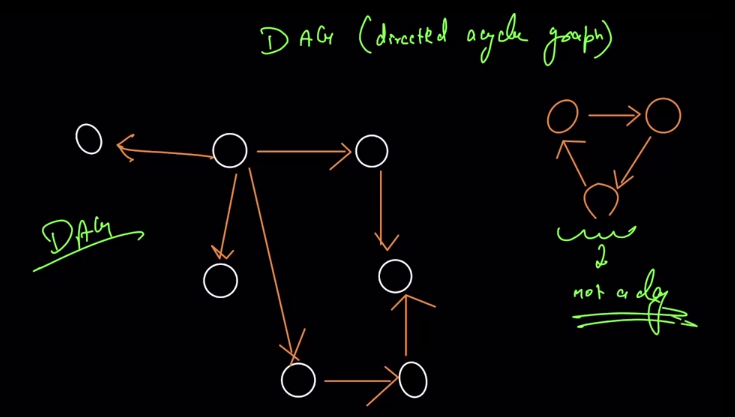 DAG (directed acyclic graph)
DAG
not a dag